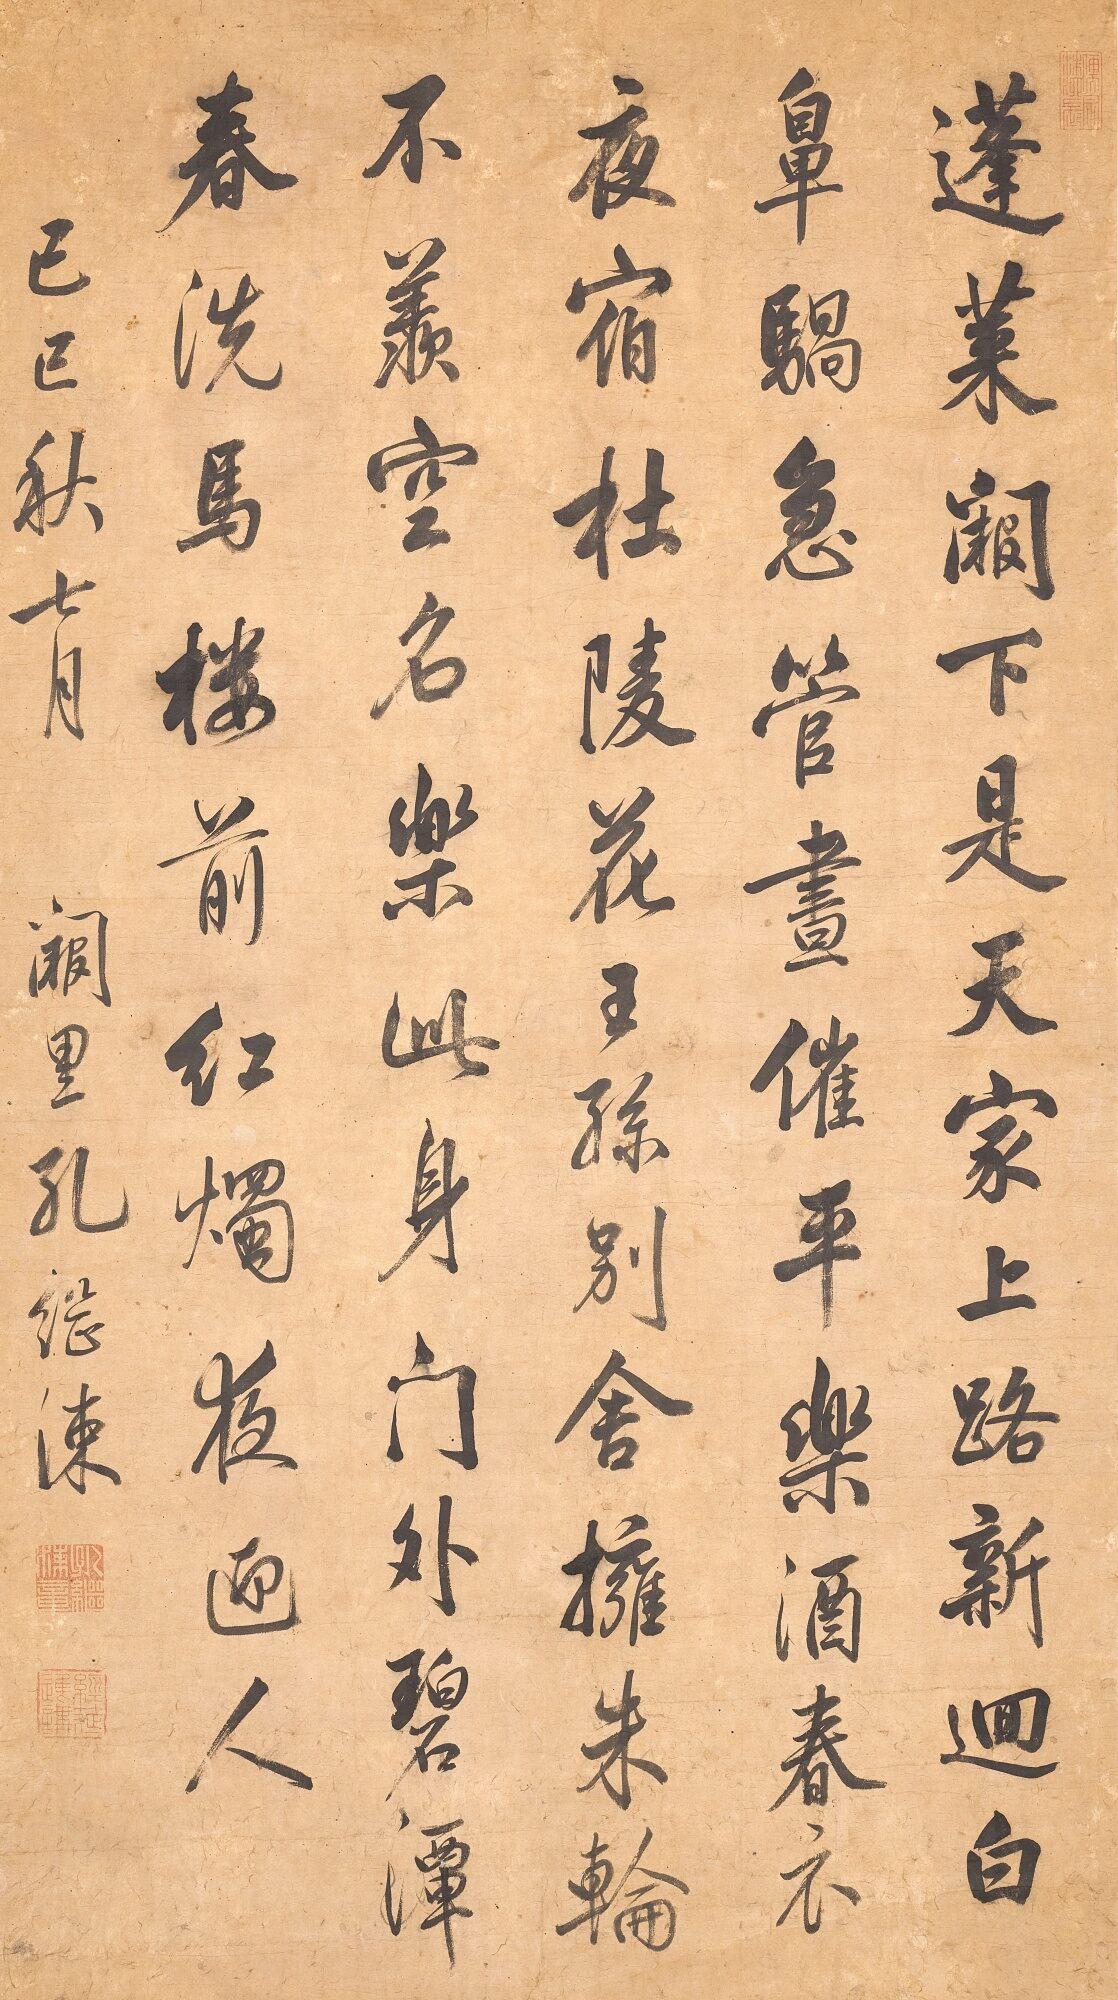 蓬莱闕下是天家上路新迴白
鼻騧急管晝催平樂酒春衣
夜宿杜陵花王孫別舍擁朱輪
不羨空名樂此身门外碧潭
春洗馬楼前红燭夜迎人
己巳秋七月 闕里孔繼涑